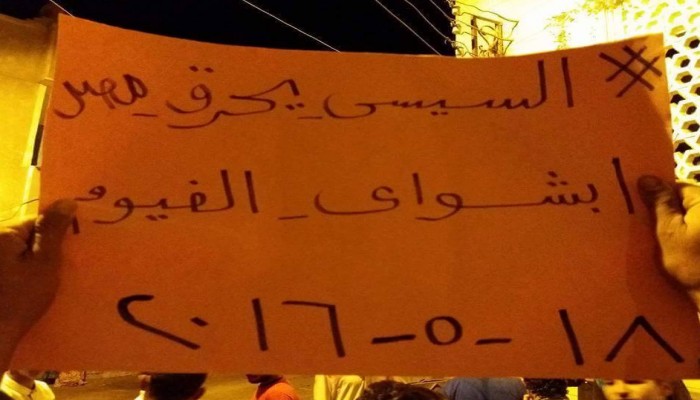 #السيسى_يحرق_مصر
ابشواى_الفيوم
١٨-٥-٢٠١٦